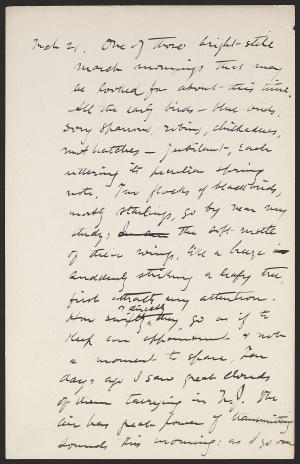 Mch 21. One of those bright still
March mornings that may
be looked for about this time.
All the early birds – blue birds,
song sparrow, robins, chickadees,
nuthatches – jubilant, each
uttering its peculiar spring
note. Two flocks of blackbirds,
mostly starlings, go by near my
study; the soft rustle
of their wings, like a breeze
suddenly striking a leafy tree,
first attracts my attention.
How swiftly & directly they go as if to
keep an appointment & not
a moment to spare. Four
days ago I saw great clouds
of them tarrying in N.J. The
air has great power of transmitting
sounds this morning; as I go over